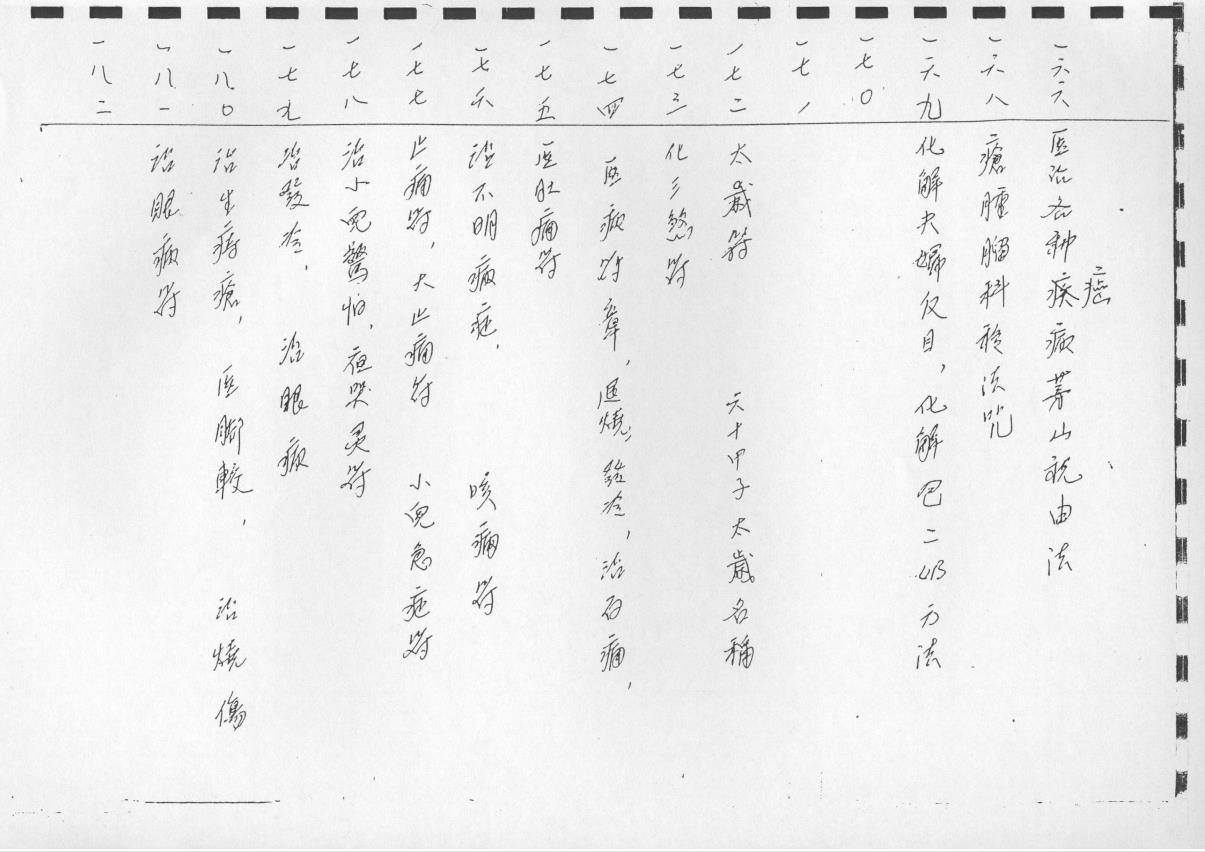 一六六 医治各种疾病茅山祝由法
癌
一六八 瘡腫腦科移法咒
一六九 化解夫婦反目，化解巴二奶方法
一七0
一七一
一七二 太歲符 六十甲子太歲名稱
一七三 化三煞符
一七四 医病符章，退燒，發冷，治百痛，
一七五 医肚痛符
一七六 治不明病症， 咳病符
一七七 止痛符，大止痛符 小兒急症符
一七八 治小兒驚怕，夜哭灵符
一七九 治發冷， 治眼病
一八0 治生痔瘡， 医脚較， 治燒傷
一八一 治眼病符
一八二